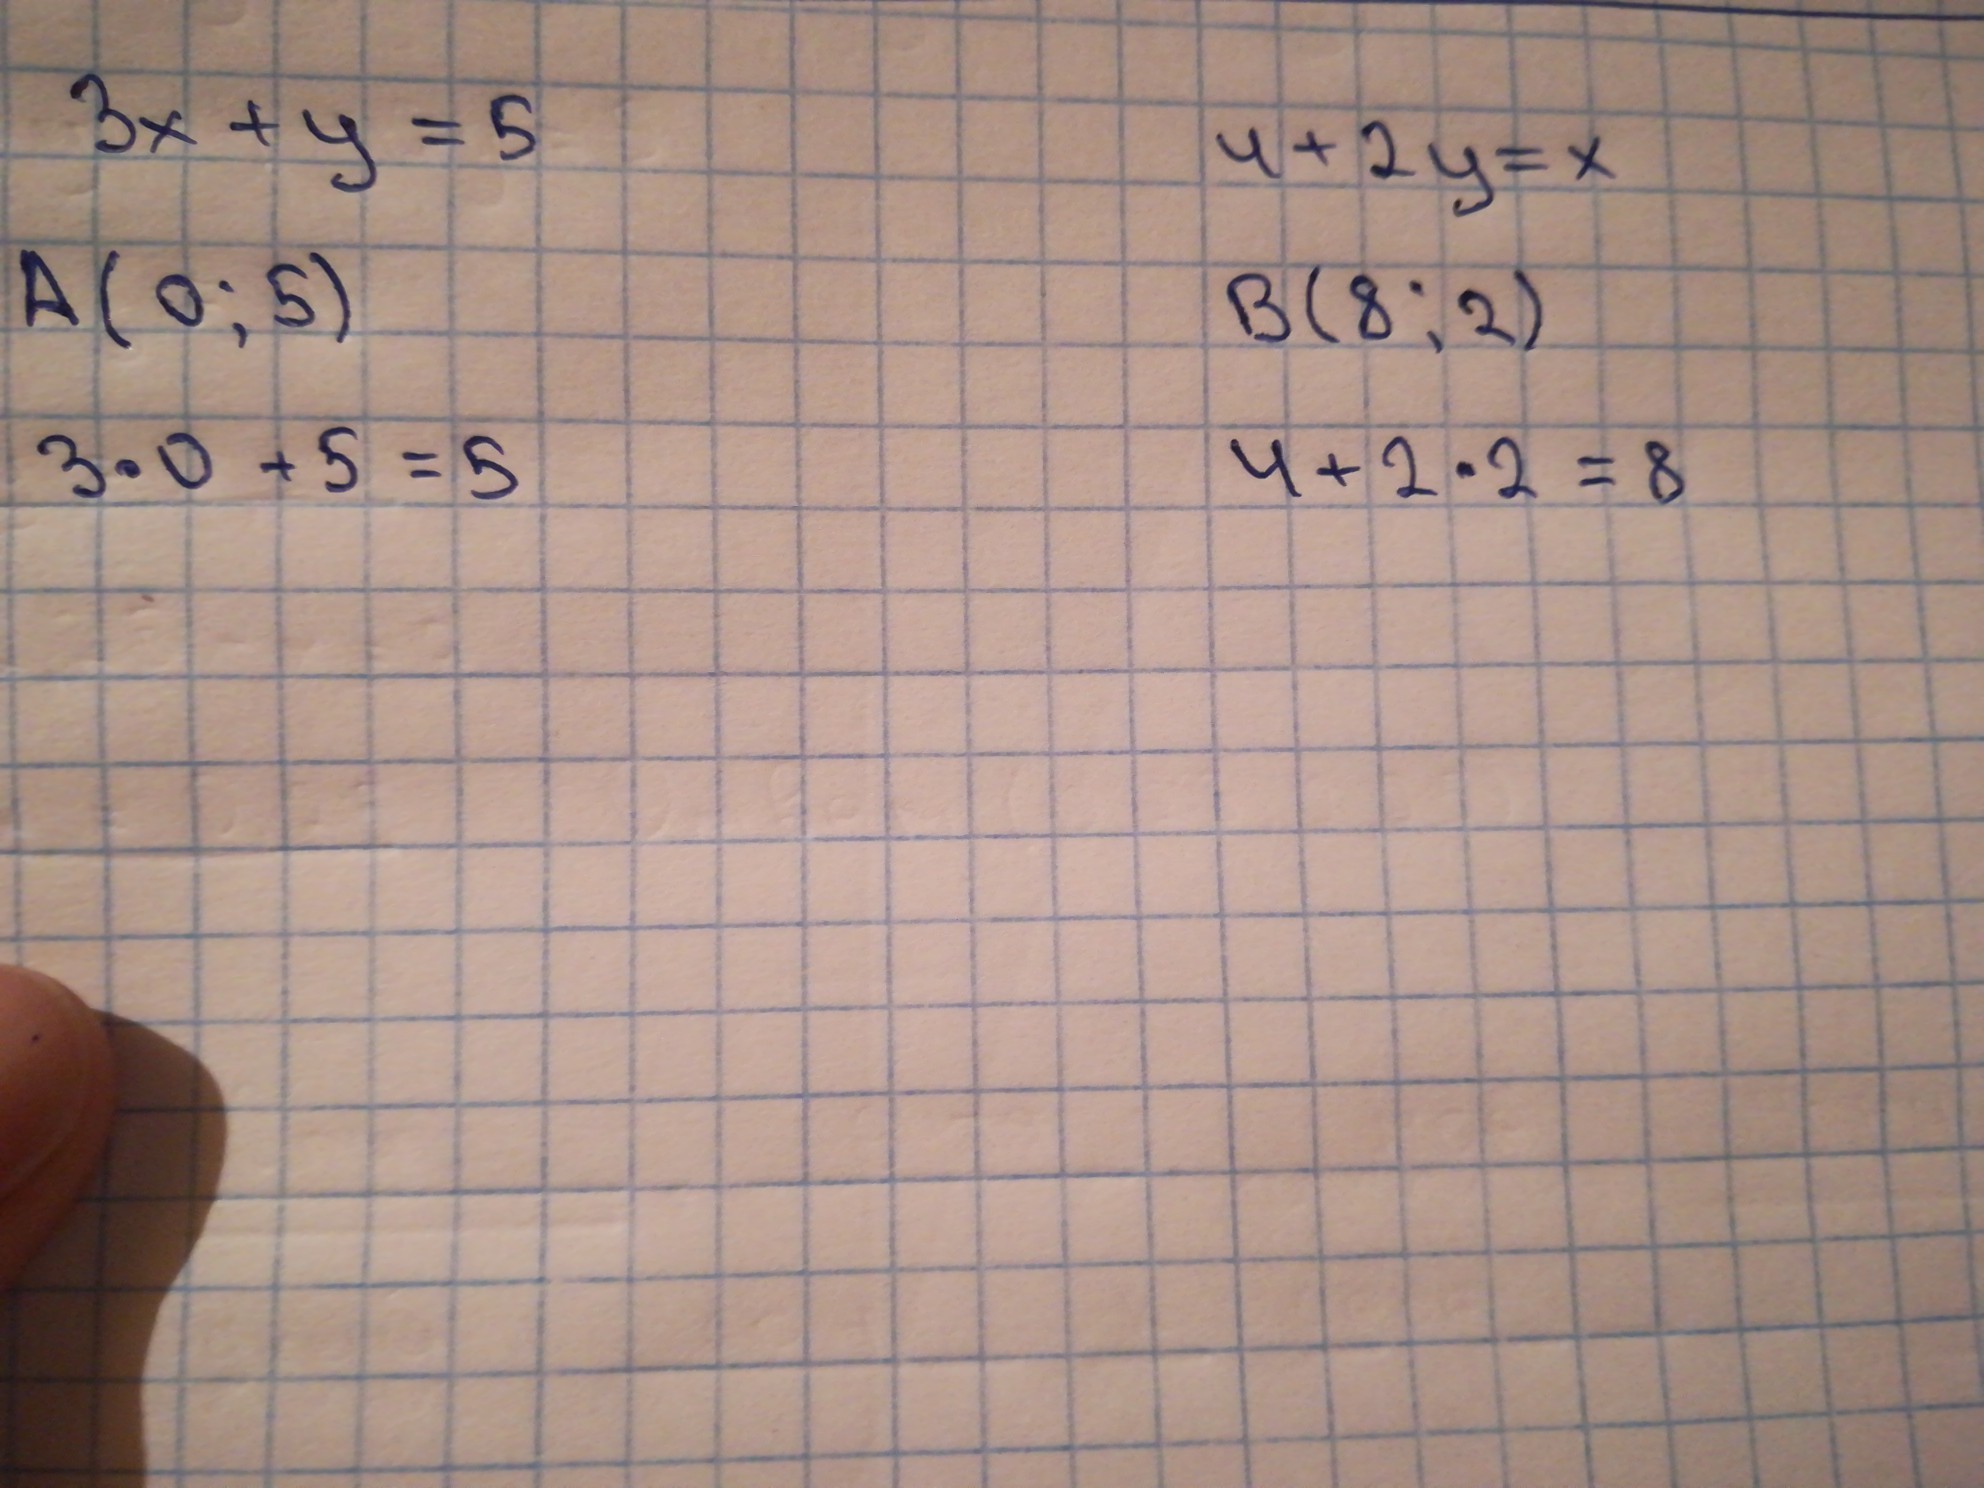 3x + y = 5
A(0; 5)
3·0 + 5 = 5
4 + 2y = x
B(8; 2)
4 + 2·2 = 8